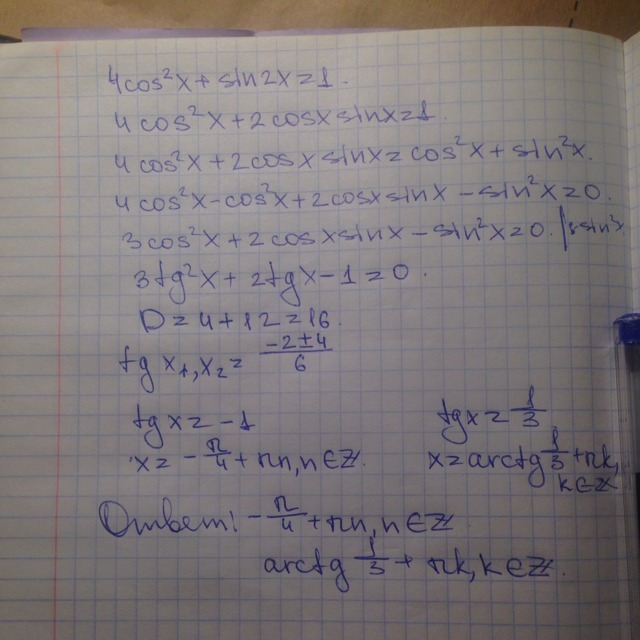 4cos²x + sin2x = 1.
4cos²x + 2cosx sinx = 1.
4cos²x + 2cosx sinx = cos²x + sin²x.
4cos²x - cos²x + 2cosx sinx - sin²x = 0.
3cos²x + 2cosx sinx - sin²x = 0. | : sin²x
3tg²x + 2tgx - 1 = 0.
D = 4 + 12 = 16.
tg x₁, x₂ = (-2±4)/6
tgx = -1 tgx = 1/3
x = -π/4 + πn, n∈Z. x = arctg 1/3 + πk,
k∈Z
Ответ: -π/4 + πn, n∈Z
arctg 1/3 + πk, k∈Z.